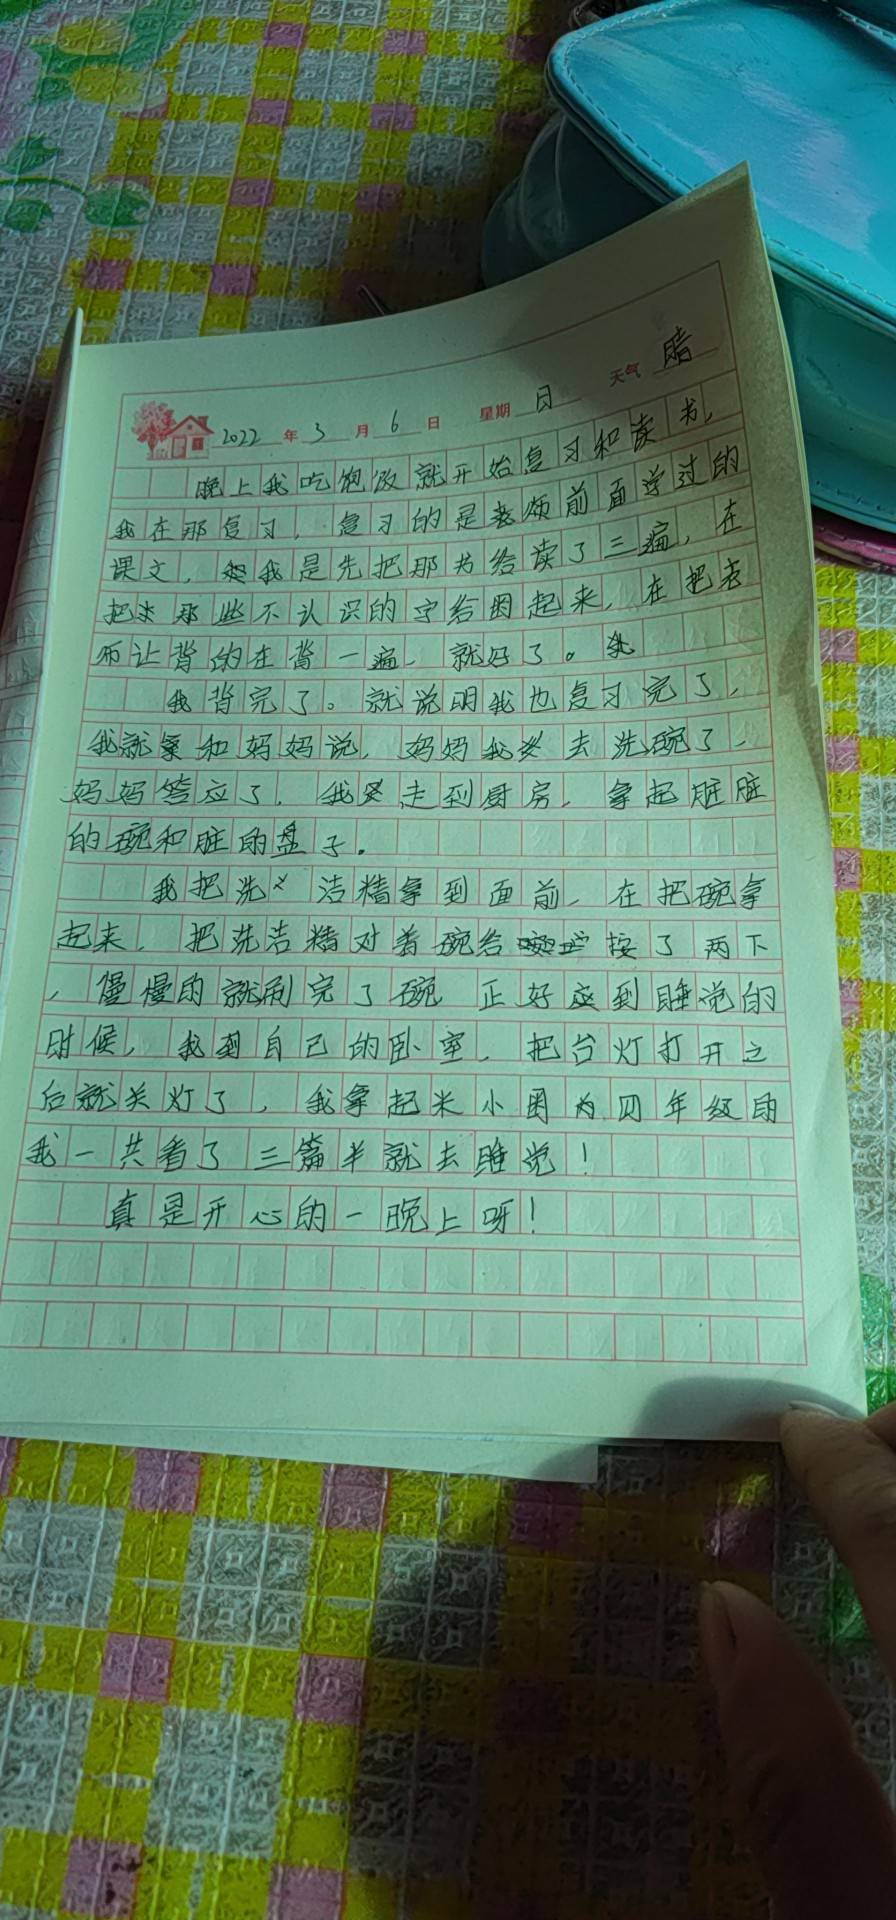 2022 年 3 月 6 日 星期 日 天气 晴
晚上我吃饱饭就开始复习和读书,
我在那复习,复习的是老师前面学过的
课文,我是先把那书给读了三遍,在
把那些不认识的字给圈起来,在把老
师让背的在背一遍,就好了。
我背完了。就说明我也复习完了,
我就和妈妈说,妈妈我去洗碗了,
妈妈答应了,我走到厨房,拿起脏脏
的碗和脏的盘子.
我把洗洁精拿到面前,在把碗拿
起来,把洗洁精对着碗给按了两下
,慢慢的就刷完了碗 正好应到睡觉的
时候,我到自己的卧室,把台灯打开之
后就关灯了,我拿起米小圈为四年级的
我一共看了三篇半就去睡觉!
真是开心的一晚上呀!